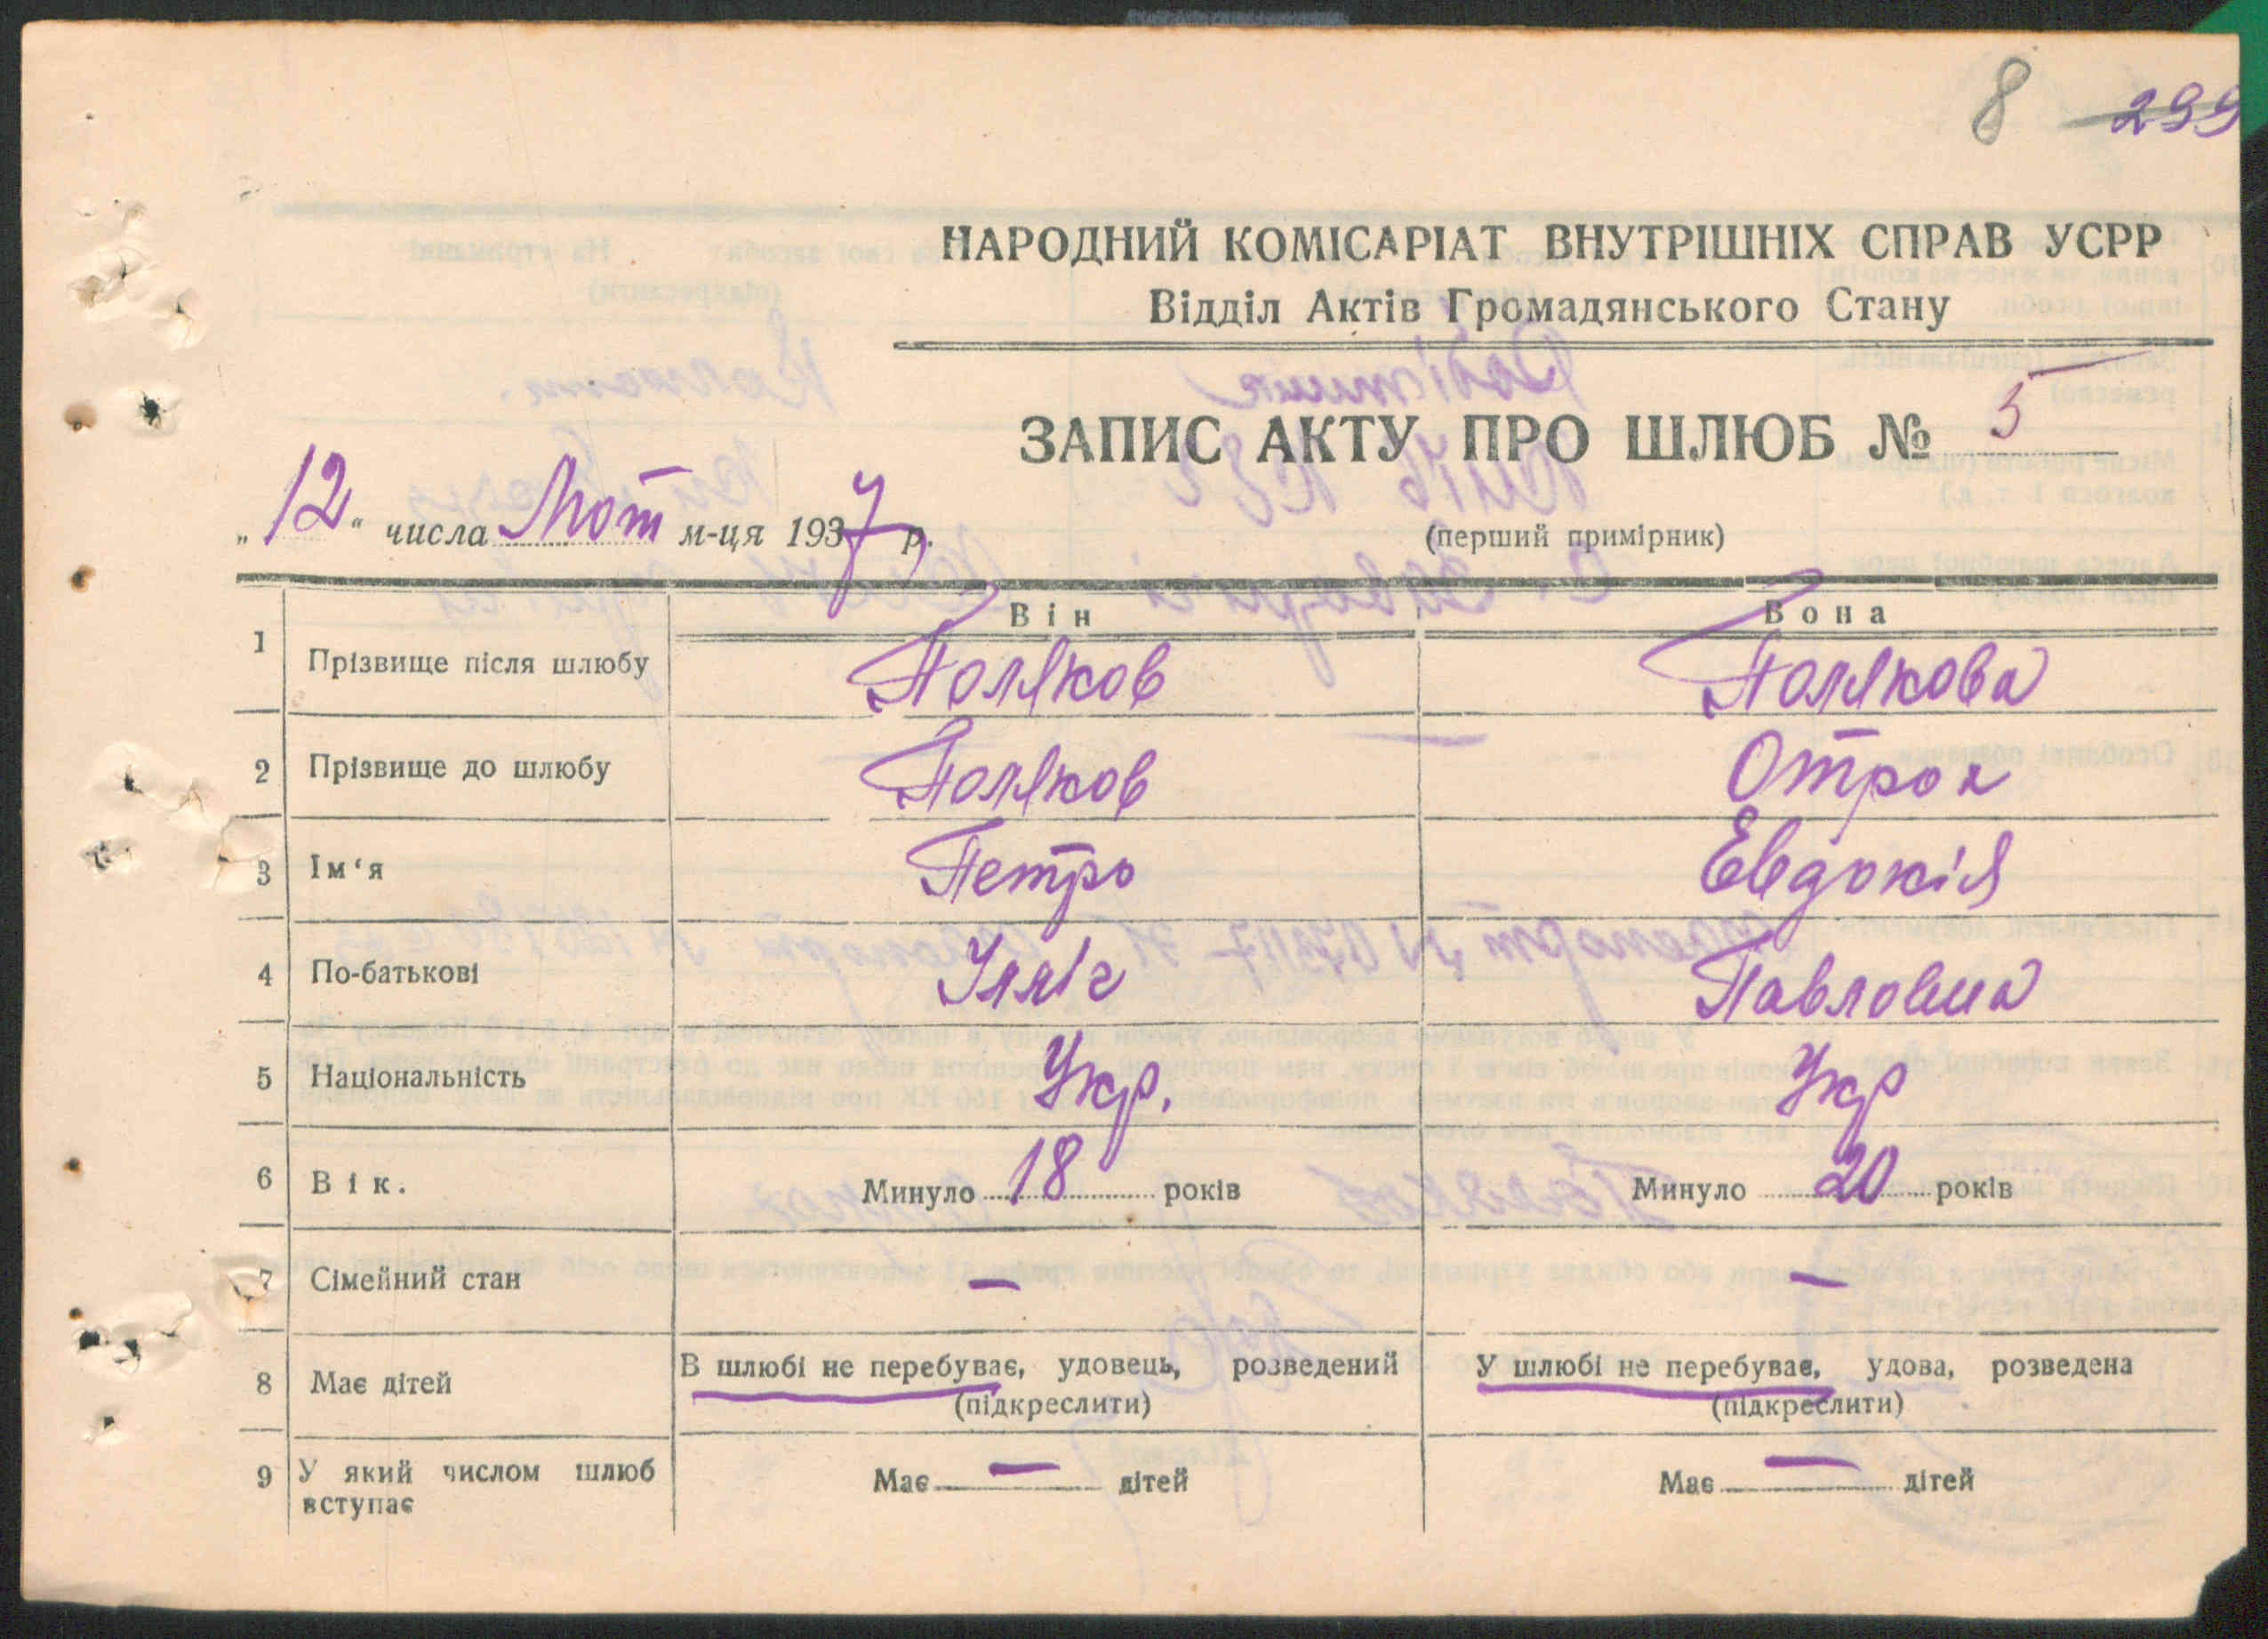 8 299
НАРОДНИЙ КОМІСАРІАТ ВНУТРІШНІХ СПРАВ УСРР
Відділ Актів Громадянського Стану
ЗАПИС АКТУ ПРО ШЛЮБ № 5
„12“ числа Лют м-ця 1937 р.
(перший примірник)
Він Вона
1 Прізвище після шлюбу Поляков Полякова
2 Прізвище до шлюбу Поляков Отрох
3 Ім‘я Петро Евдокія
4 По-батькові Ілліч Павловна
5 Національність Укр. Укр
6 Вік. Минуло 18 років Минуло 20 років
7 Сімейний стан — —
8 Має дітей В шлюбі не перебуває, удовець, розведений У шлюбі не перебуває, удова, розведена
(підкреслити) (підкреслити)
9 У який числом шлюб Має — дітей Має — дітей
вступає